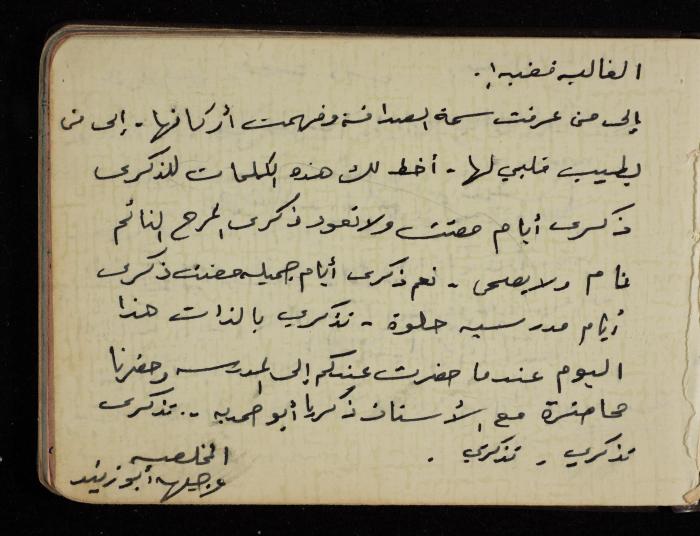 الغاليه فضيه!.
إلى من عرفت سمة الصداقة وفهمت أركانها. إلى من
يطيب قلبي لها. أخط لك هذه الكلمات للذكرى
ذكرى أيام مضت ولا تعود ذكرى المرح النائم
نام ولا يصحى. نعم ذكرى أيام جميله مضت ذكرى
أيام مدرسيه حلوة. تذكري بالذات هذا
اليوم عندما حضرت عندكم إلى المدرسه وحضرنا
محاضرة مع الأستاذ ذكريا أبو حمديه .. تذكرى
تذكري . تذكري .
المخلصه
وجيهه أبو زنيد